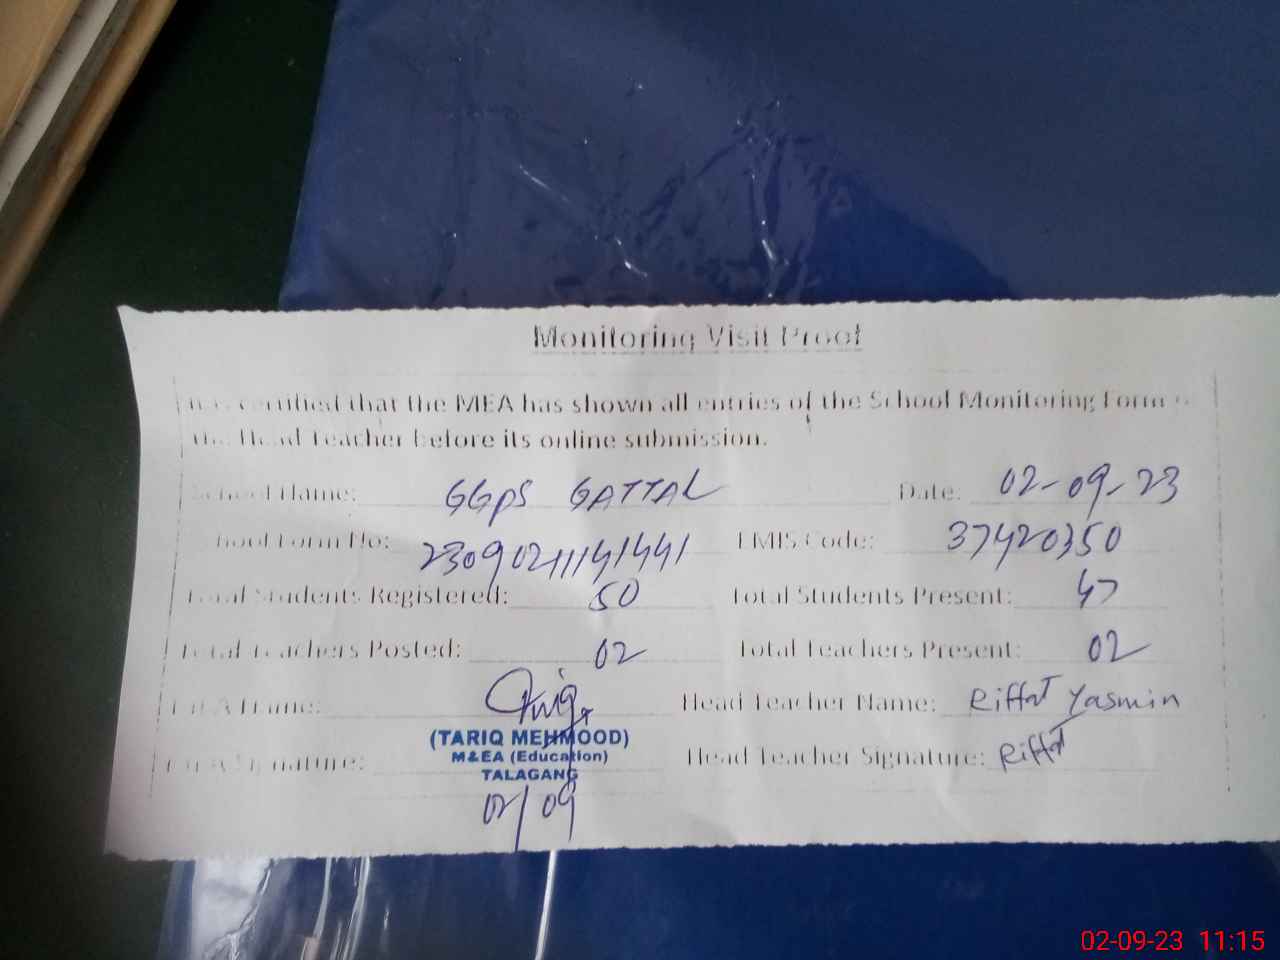 Monitoring Visit Proof
It is certified that the MEA has shown all entries of the School Monitoring Form
the Head Teacher before its online submission.
School Name: GGPS GATTAL Date: 02-09-23
School Form No: 2309021141441 EMIS Code: 37420350
Total Students Registered: 50 Total Students Present: 47
Total Teachers Posted: 02 Total Teachers Present: 02
MEA Name: Head Teacher Name: Riffat Yasmin
(TARIQ MEHMOOD)
M&EA (Education)
MEA Signature: Head Teacher Signature: Riffat
TALAGANG
02/09
02-09-23 11:15